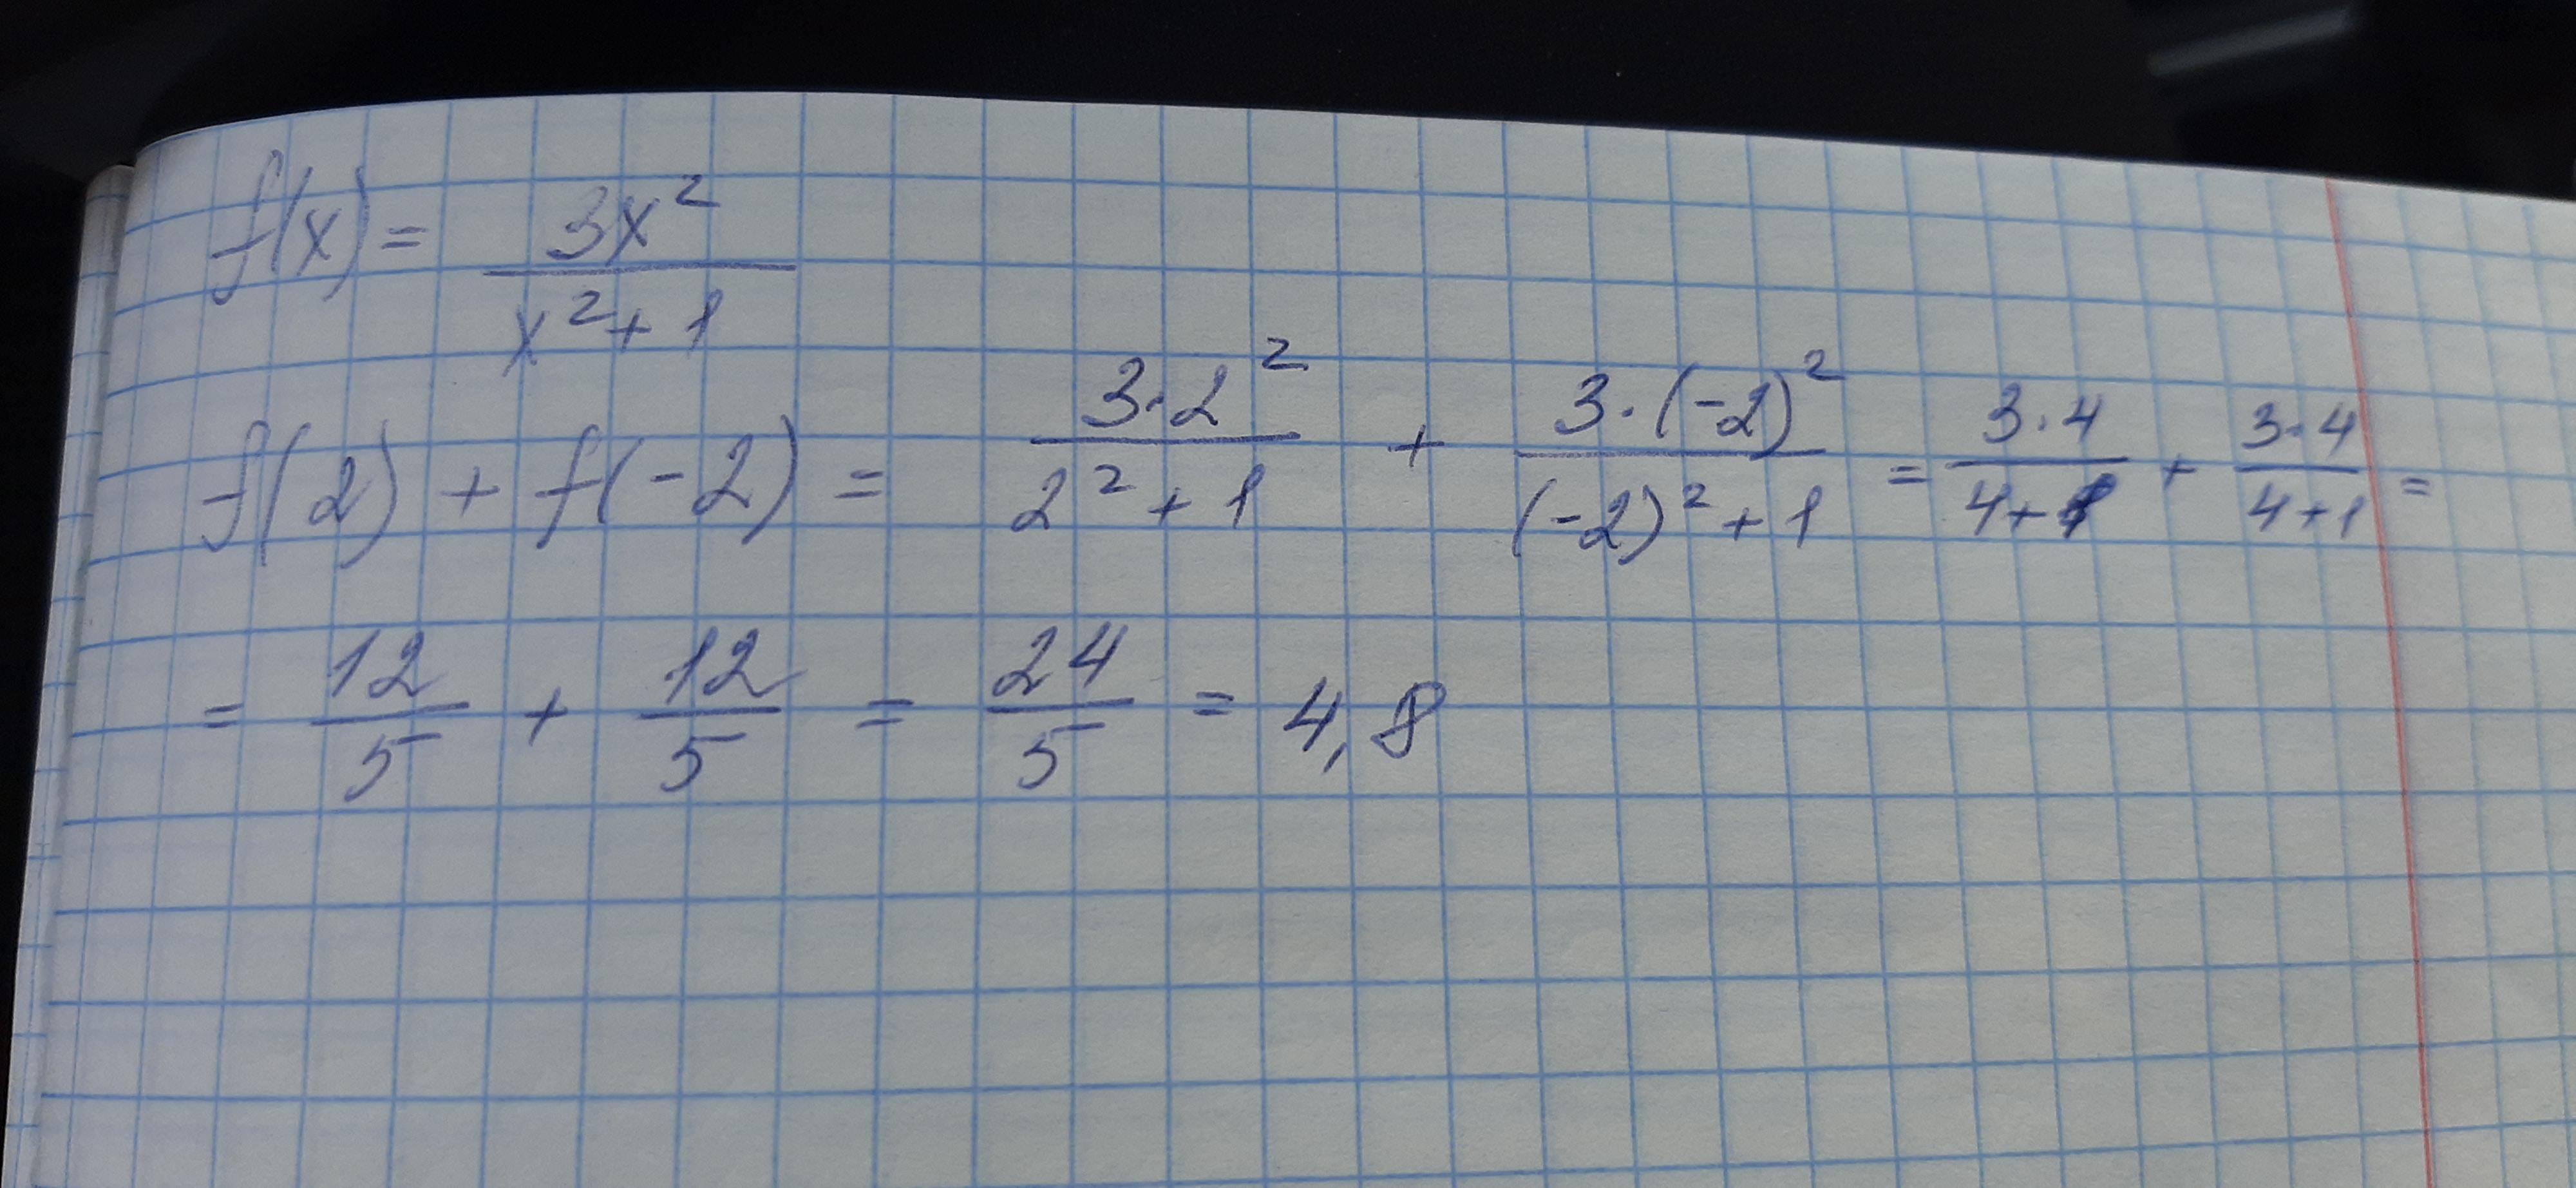 f(x) = 3x² / x² + 1
f(2) + f(-2) = 3·2² / 2² + 1 + 3·(-2)² / (-2)² + 1 = 3·4 / 4+1 + 3·4 / 4+1 =
= 12/5 + 12/5 = 24/5 = 4,8